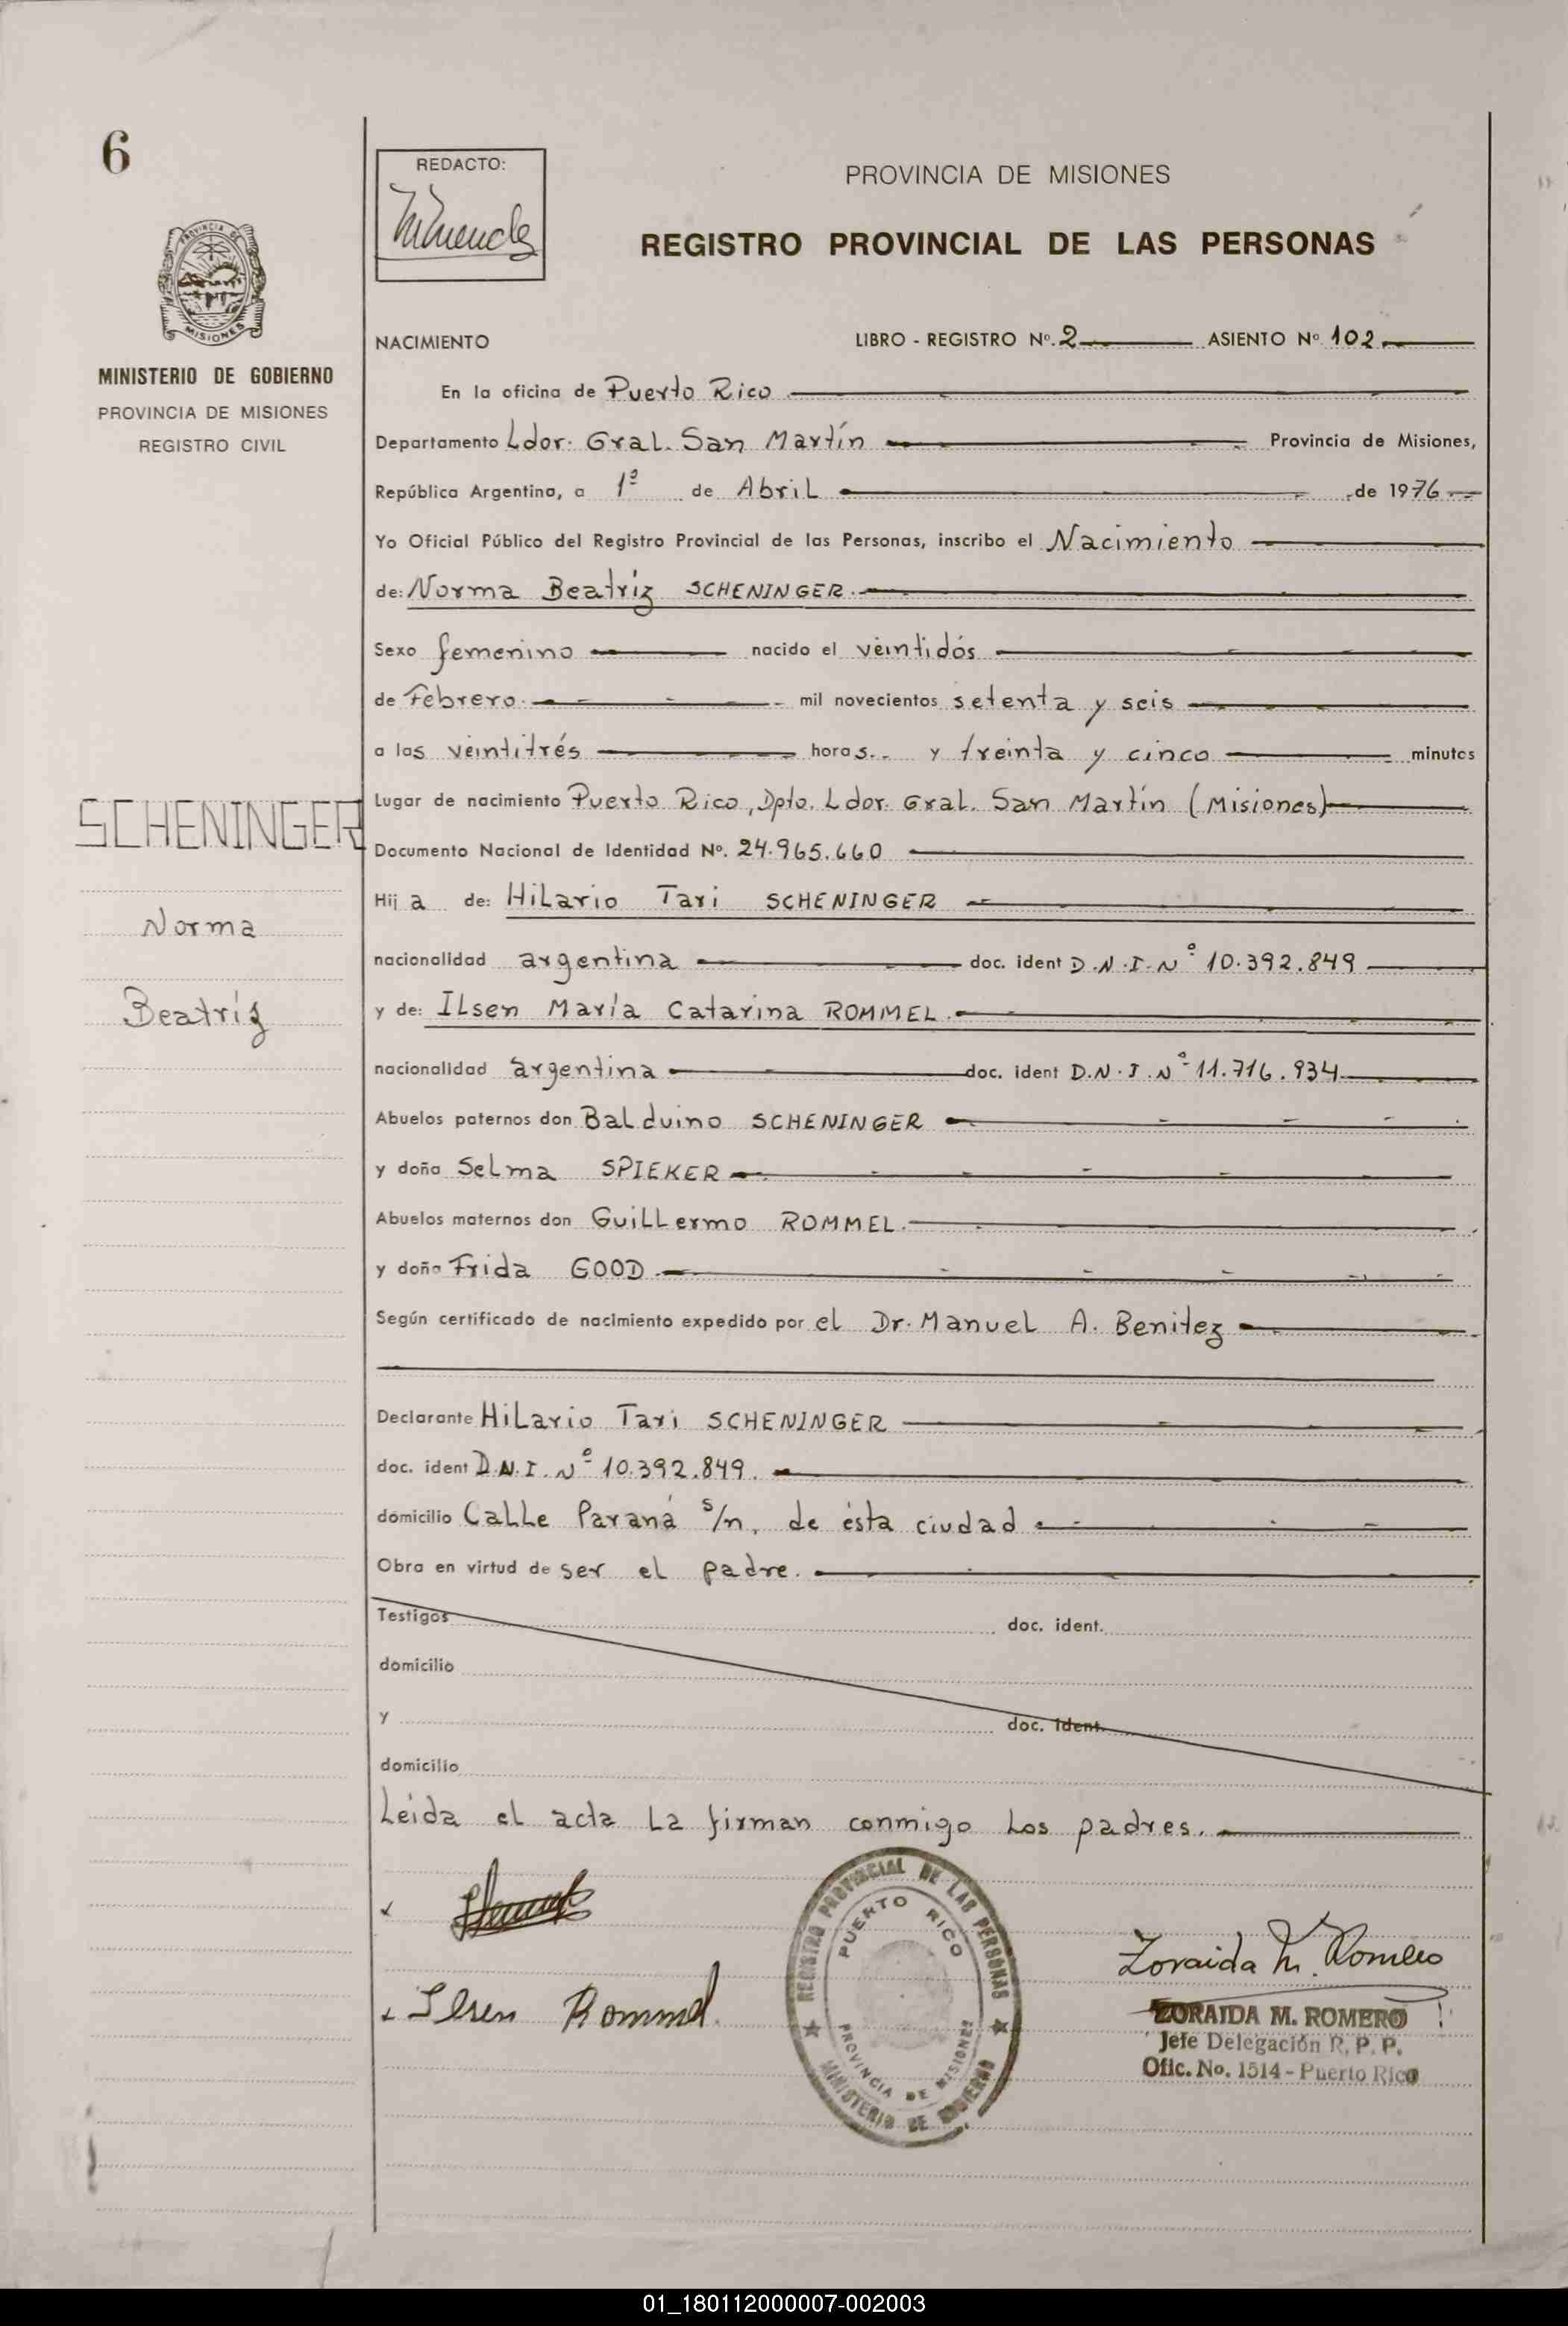 6
REDACTO:
PROVINCIA DE MISIONES
REGISTRO PROVINCIAL DE LAS PERSONAS
PROVINCIA DE
MISIONES
MINISTERIO DE GOBIERNO
PROVINCIA DE MISIONES
REGISTRO CIVIL
NACIMIENTO LIBRO - REGISTRO Nº. 2 ASIENTO Nº 102
En la oficina de Puerto Rico
Departamento Ldor. Gral. San Martín Provincia de Misiones,
República Argentina, a 1º de Abril de 1976
Yo Oficial Público del Registro Provincial de las Personas, inscribo el Nacimiento
de: Norma Beatriz SCHENINGER.
Sexo femenino nacido el veintidós
de Febrero. mil novecientos setenta y seis
a las veintitrés horas. y treinta y cinco minutos
Lugar de nacimiento Puerto Rico, Dpto. Ldor. Gral. San Martín (Misiones)
Documento Nacional de Identidad Nº. 24.965.660
Hij a de: Hilario Tari SCHENINGER
nacionalidad argentina doc. ident D.N.I. Nº 10.392.849
y de: Ilsen María Catarina ROMMEL.
nacionalidad argentina doc. ident D.N.I. Nº 11.716.934
Abuelos paternos don Balduino SCHENINGER
y doña Selma SPIEKER
Abuelos maternos don Guillermo ROMMEL.
y doña Frida GOOD
Según certificado de nacimiento expedido por el Dr. Manuel A. Benitez
Declarante Hilario Tari SCHENINGER
doc. ident D.N.I. Nº 10.392.849.
domicilio Calle Paraná s/n. de ésta ciudad
Obra en virtud de ser el padre.
Testigos doc. ident.
domicilio
y doc. ident.
domicilio
Leída el acta la firman conmigo los padres.
SCHENINGER
Norma
Beatríz
Ilsen Rommel.
REGISTRO PROVINCIAL DE LAS PERSONAS
PUERTO RICO
PROVINCIA DE MISIONES
MINISTERIO DE GOBIERNO
Zoraida M. Romero
ZORAIDA M. ROMERO
Jefe Delegación R. P. P.
Ofic. No. 1514 - Puerto Rico
01_180112000007-002003